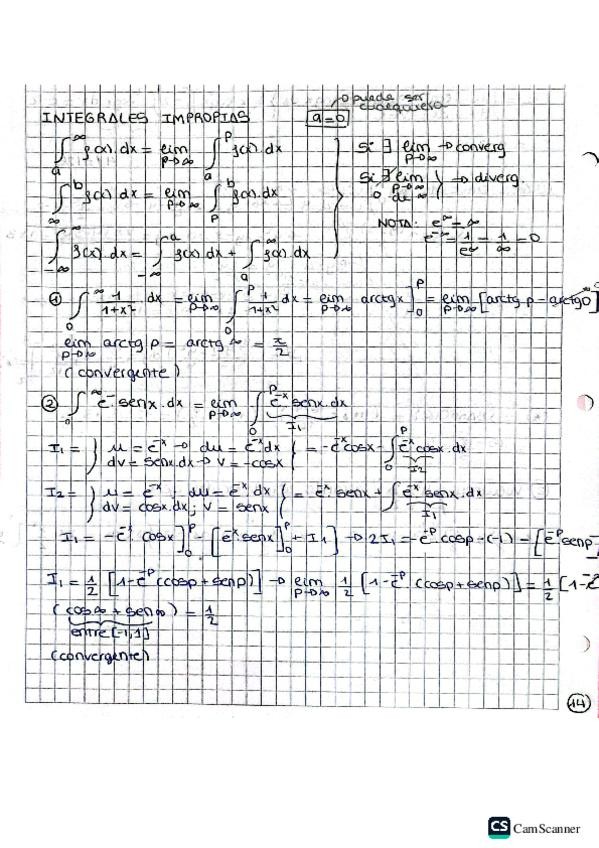 → puede ser cualquiera
INTEGRALES IMPROPIAS   a=0
∫ₐ^∞ f(x).dx = lim_{p→∞} ∫ₐ^p f(x).dx   Si ∃ lim_{p→∞} → converg
∫₋∞^b f(x).dx = lim_{p→∞} ∫_p^b f(x).dx   Si ∄ lim_{p→∞} o de ∞ } → diverg.
NOTA: e^∞ = ∞
e^-∞ = 1/e^∞ = 1/∞ = 0
∫₋∞^∞ f(x).dx = ∫₋∞^a f(x).dx + ∫ₐ^∞ f(x).dx
① ∫₀^∞ 1/(1+x²) dx = lim_{p→∞} ∫₀^p 1/(1+x²) dx = lim_{p→∞} arctgx]₀^p = lim_{p→∞} [arctg p - arctg0]
lim_{p→∞} arctg p = arctg ∞ = π/2
(convergente)
② ∫₀^∞ e^-x senx.dx = lim_{p→∞} ∫₀^p e^-x senx.dx
I₁
I₁ = } u = e^-x → du = -e^-x dx
dv = senx.dx → v = -cosx { = -e^-x cosx - ∫₀^p e^-x cosx.dx
I₂
I₂ = } u = e^-x ; du = -e^-x dx
dv = cosx.dx ; v = senx { = e^-x senx + ∫ e^-x senx.dx
I₁
I₁ = -e^-x cosx]₀^p - [e^-x senx]₀^p + I₁] → 2I₁ = -e^-p cosp - (-1) - [e^-p senp
I₁ = 1/2 [1 - e^-p (cosp + senp)] → lim_{p→∞} 1/2 [1 - e^-p (cosp + senp)] = 1/2 [1 - e
(cos∞ + sen∞) = 1/2
entre [-1,1]
(convergente)
14
CS CamScanner